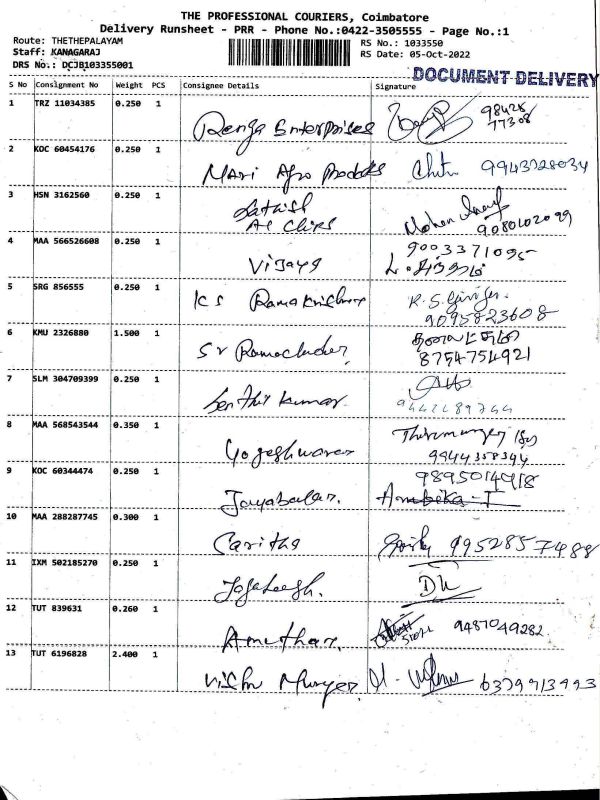 THE PROFESSIONAL COURIERS, Coimbatore
Delivery Runsheet - PRR - Phone No.:0422-3505555 - Page No.:1
Route: THETHEPALAYAM
Staff: KANAGARAJ
DRS No.: DCJB103355001
RS No.: 1033550
RS Date: 05-Oct-2022
DOCUMENT DELIVERY
S No Consignment No Weight PCS Consignee Details Signature
1 TRZ 11034385 0.250 1
Renga Enterprises 98428
77308
2 KOC 60454176 0.250 1
Mari Agro Products 9943728034
3 HSN 3162560 0.250 1
Sathish Mohan
A1 Chips 9080102099
4 MAA 566526608 0.250 1
9003371095
Vijaya
5 SRG 856555 0.250 1
KS Ramakrishna R.S.
9095823608
6 KMU 2326880 1.500 1
Sr
8754754921
7 SLM 304709399 0.250 1
Senthil Kumar
8 MAA 568543544 0.350 1
Yogeshwaran
9944358344
9 KOC 60344474 0.250 1
9895014918
Jayabalan. Ambika-T
10 MAA 288287745 0.300 1
Saritha 9952857488
11 IXM 502185270 0.250 1
12 TUT 839631 0.260 1
9487049282
13 TUT 6196828 2.400 1
Vishnu 6379913993